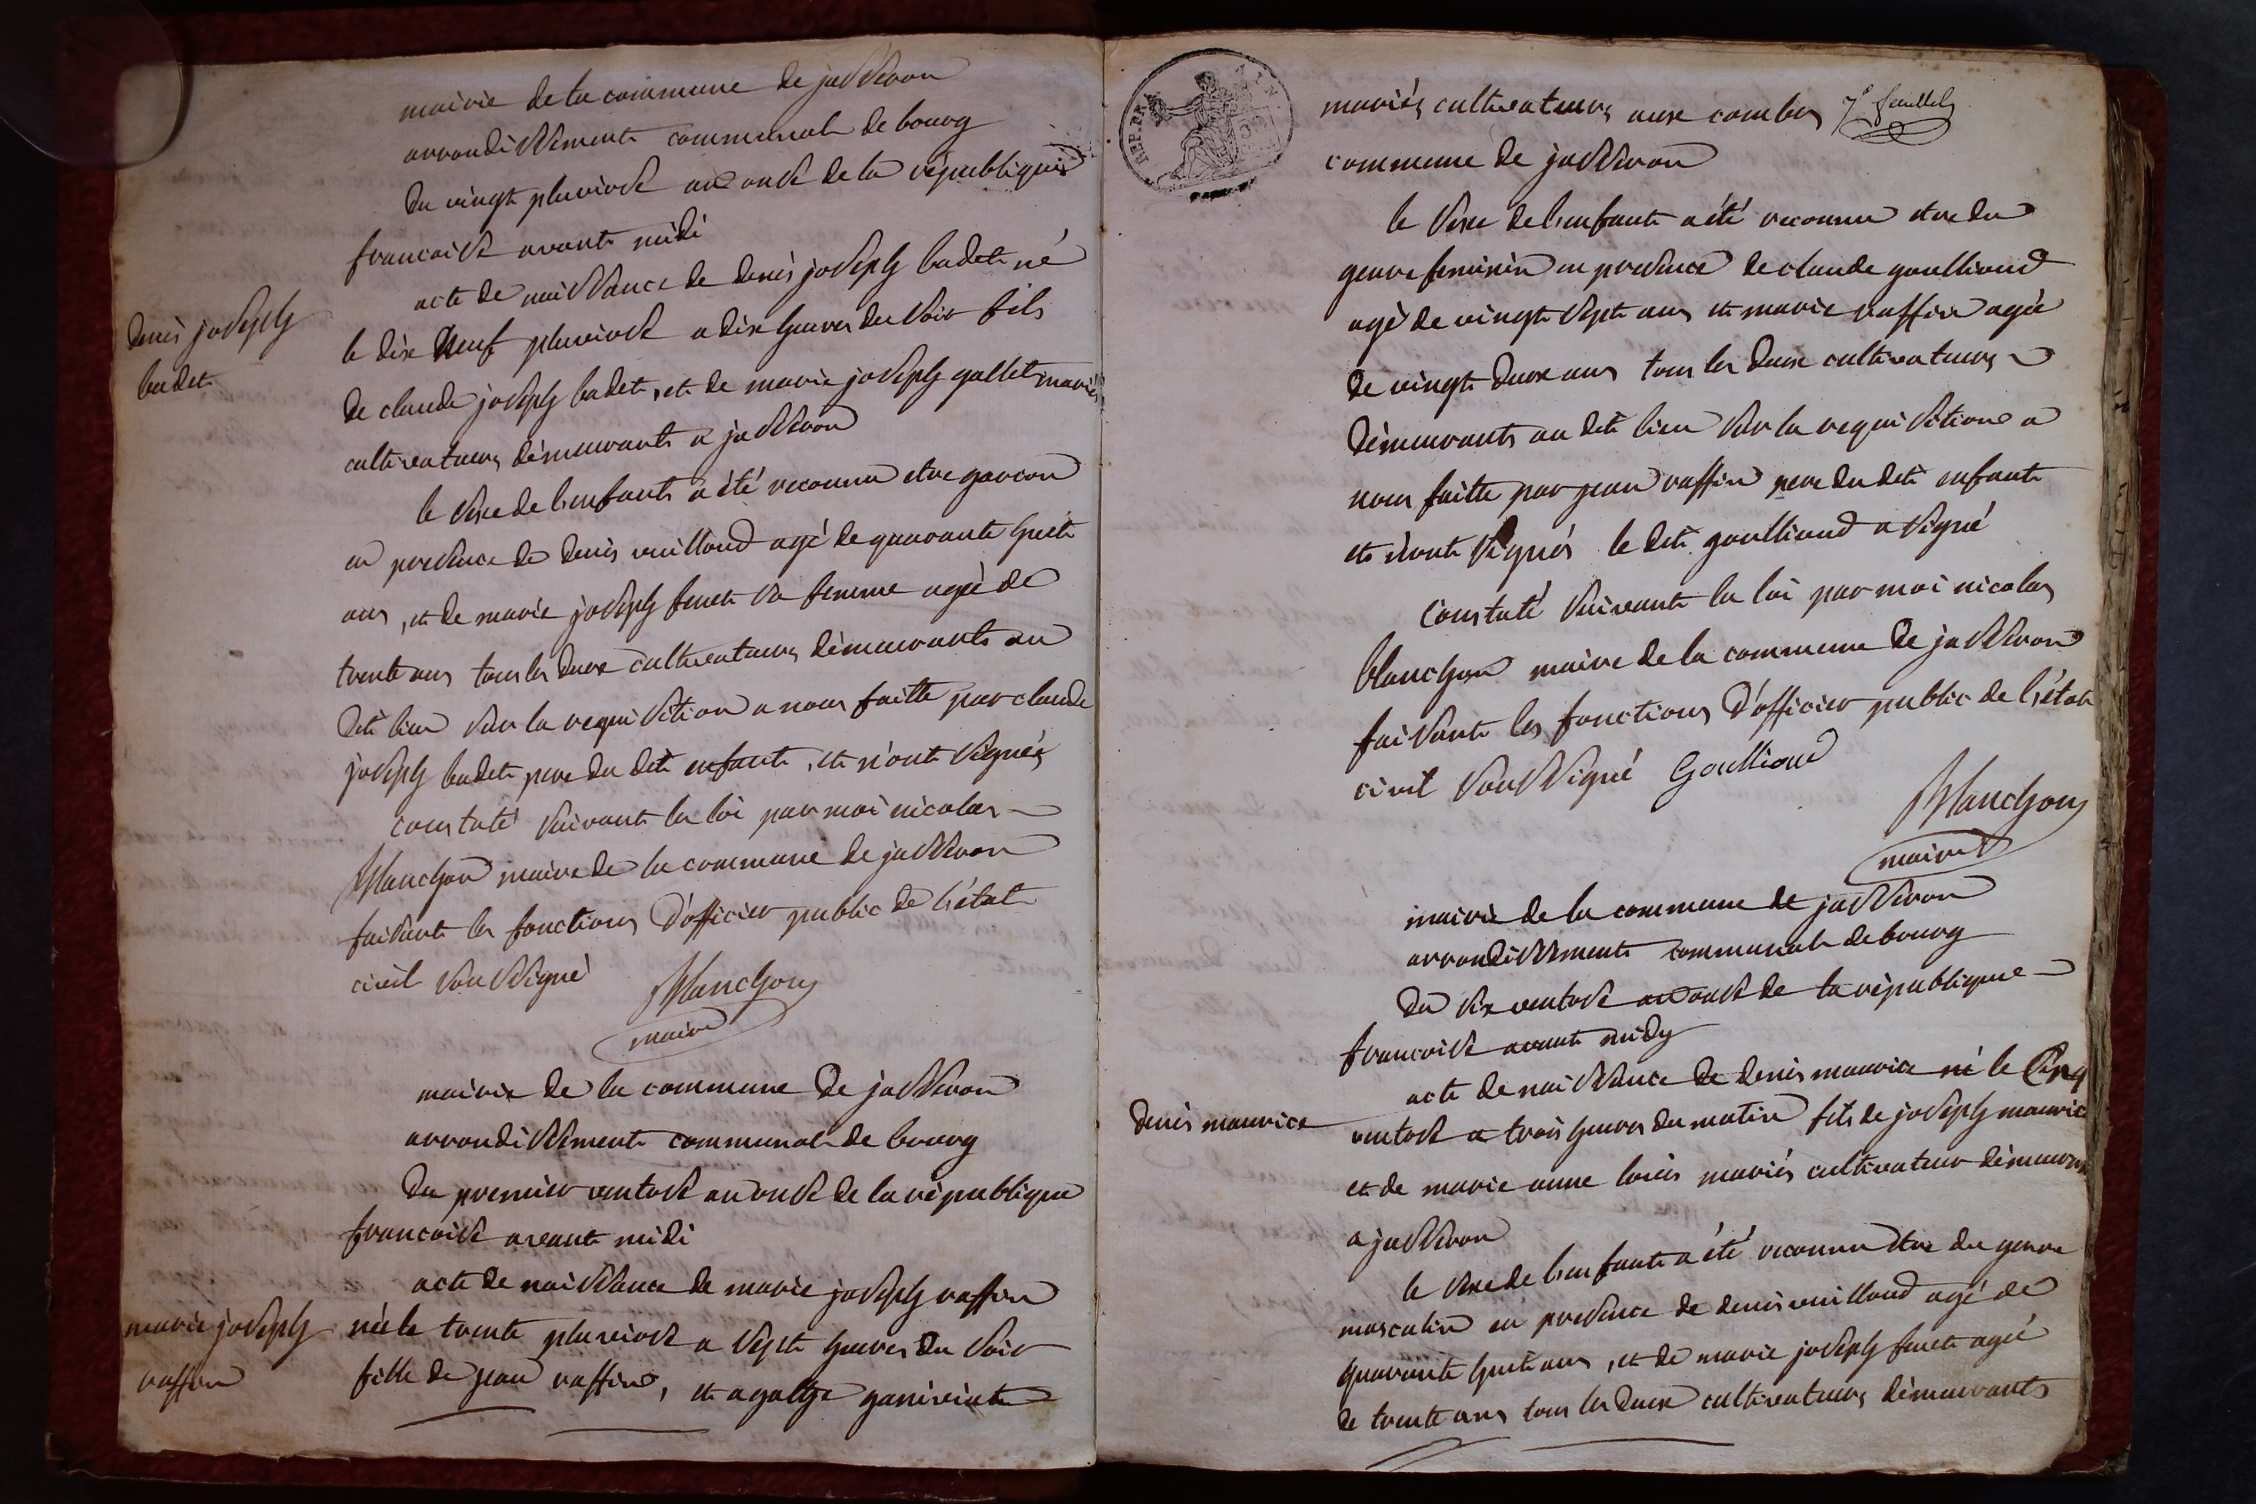 mairie de la commune de jasseron
arrondissement communal de bourg
Du vingt pluviose an onse de la république
francoise avant midi
denis joseph
badet
acte de naissance de denis joseph badet né
le dix neuf pluviose a dix heures du soir fils
de claude joseph badet, et de marie joseph gallet mariés
cultivateurs démeurants a jasseron
le sexe de l'enfant a été reconnu etre garcon
en presence de denis vuilloud agé de quarante huit
ans, et de marie joseph feuet sa femme agée de
trente ans tous les deux cultivateurs démeurants au
dit lieu sur la requisition a nous faitte par claude
joseph badet pere du dit enfant, et n'ont signés
constaté suivant la loi par moi nicolas
Blanchon maire de la commune de jasseron
faisant les fonctions d'officier public de l'état
civil soussigné Blanchon
maire
mairie de la commune de jasseron
arrondissement communal de bourg
Du premier ventose an onse de la république
francoise avant midi
marie joseph
raffin
acte de naissance de marie joseph raffin
née le trente pluviose a sept heures du soir
fille de jean raffin, et agathe
REP. FRA.
mariés cultivateurs aux combes 7e feuillet
commune de jasseron
le sexe de l'enfant a été reconnu etre du
genre feminin en presence de claude goulliond
agé de vingt sept ans et marie raffin agée
de vingt deux ans tous les deux cultivateurs
démeurants au dit lieu sur la requisition a
nous faitte par jean raffin pere du dit enfant
et n'ont signés le dit goulliond a signé
Constaté suivant la loi par moi nicolas
blanchon maire de la commune de jasseron
faisant les fonctions d'officier public de l'état
civil soussigné Goulliond
Blanchon
maire
mairie de la commune de jasseron
arrondissement communal de bourg
Du six ventose an onse de la république
francoise avant midy
denis maurice
acte de naissance de denis maurice né le Cinq
ventose a trois heures du matin fils de joseph maurice
et de marie anne mariés cultivateur démeurants
a jasseron
le sexe de l'enfant a été reconnu etre du genre
masculin en presence de denis vuilloud agé de
quarante huit ans, et de marie joseph feuet agée
de trente ans tous les deux cultivateurs démeurants